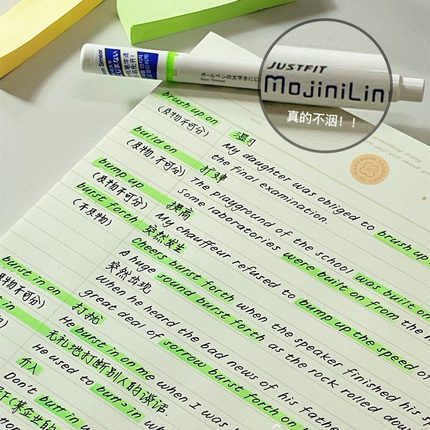 JUSTFIT
MojiniLin
真的不洇！！
ボールペンの文字を
Non Smear
brush up on
(及物不可分)
温习
My daughter was obliged to brush up
the final examination
build on
(及物,不可分)
打及事
The playground of the school was built on
Some laboratories were built on from the
bump up
(及物不可分)
提高
My chauffeur refused to bump up the speed
burst forth
(不及物)
突然发生
Cheers burst forth when the speaker finished his
突然出现
A huge sound burst forth as the rock rolled
When he heard the bad news of his fath
great deal of sorrow burst forth
burst in on
打扰
He burst in on me when I was
不可分)
无礼地打断别人的谈话
He used to burst in w
介入
Don't burst in